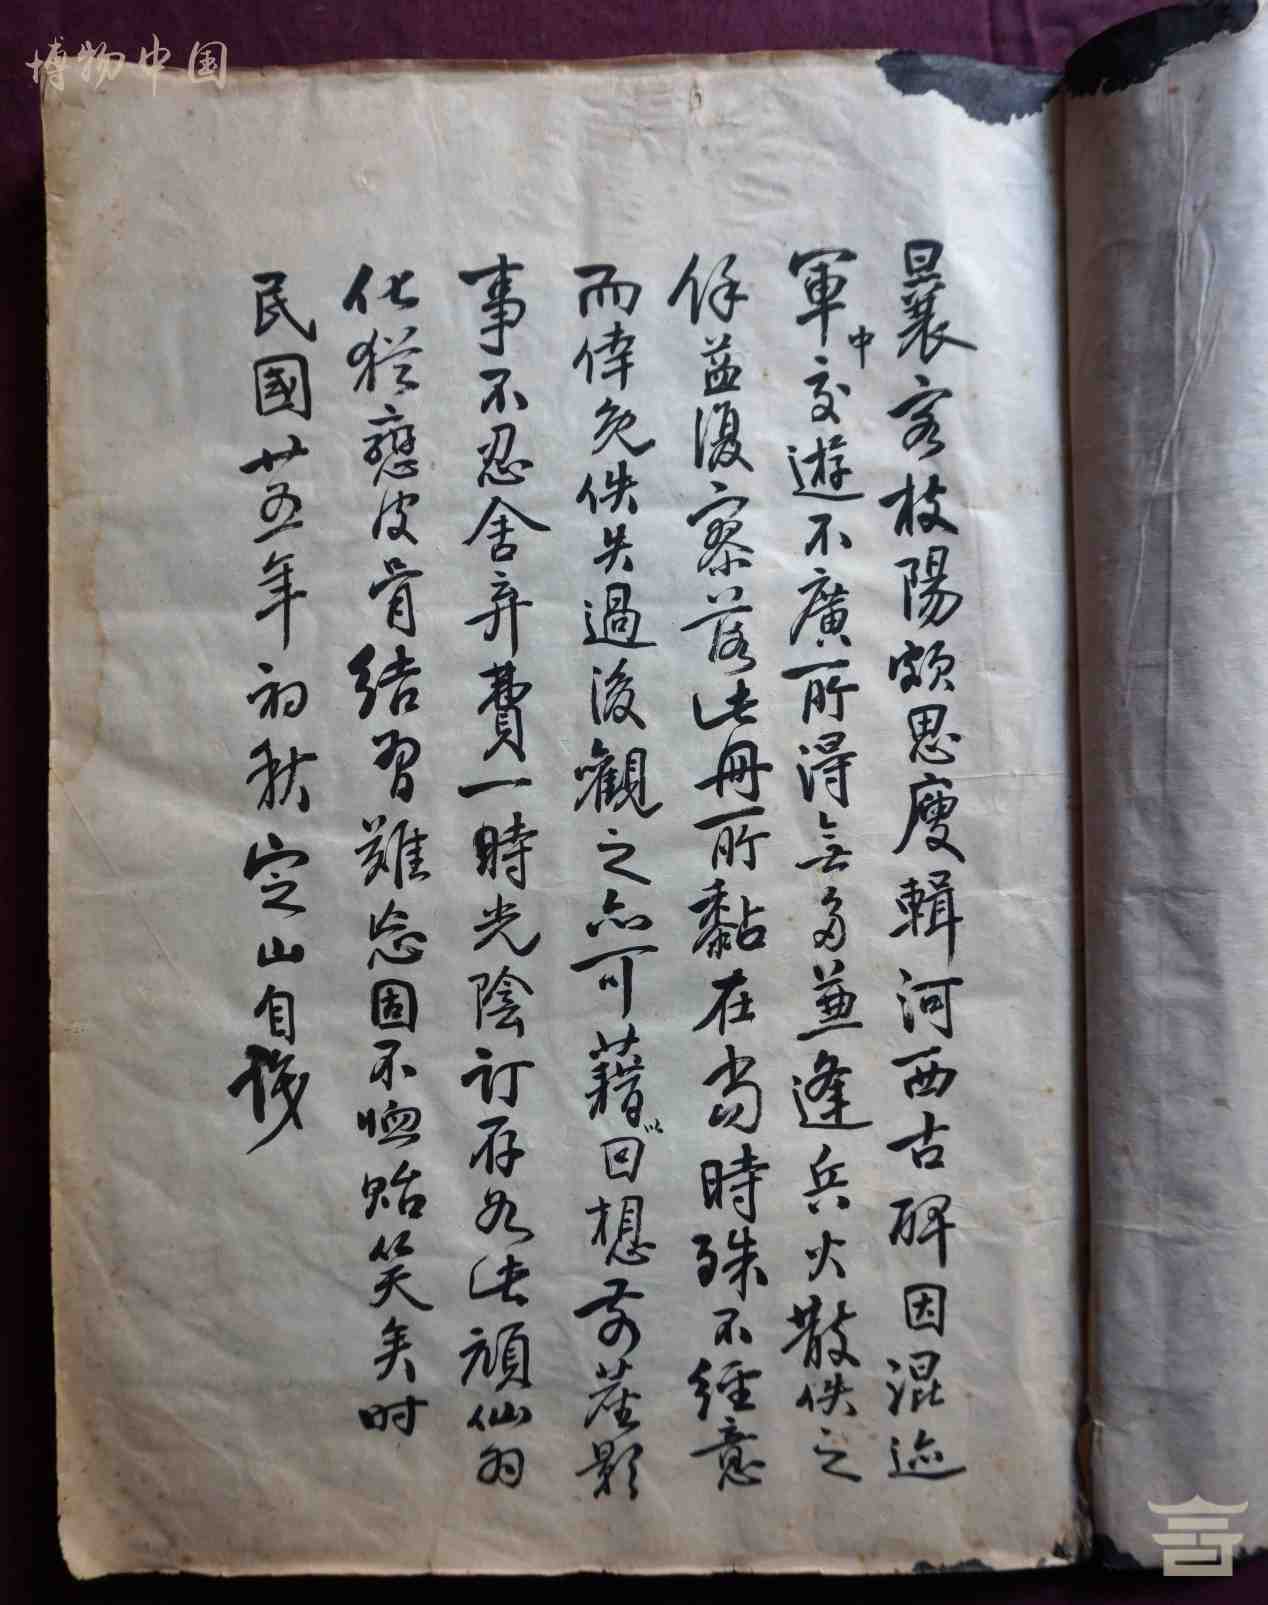 博物中国
曩客枝陽頗思廋輯河西古碑因混迹
軍中交遊不廣所得無多兼逢兵火散佚之
餘益復寥落此冊所黏在當時殊不經意
而倖免佚失過後觀之亦可藉以回想前塵影
事不忍舍弃費一時光陰訂存如此頑仙羽
化猶戀皮骨結習難忘固不恤貽笑矣时
民國廿五年初秋定山自識